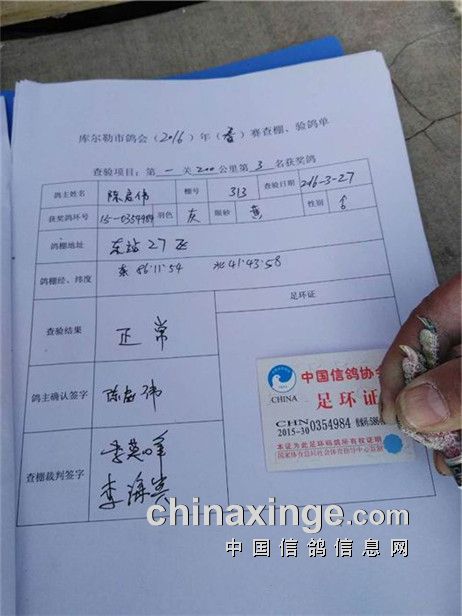 库尔勒市鸽会（2016）年（春）赛查棚、验鸽单
查验项目：第一关200公里第3名获奖鸽
鸽主姓名 陈启伟 棚号 313 查验日期 2016-3-27
获奖鸽环号 15-0354984 羽色 灰 眼砂 黄 性别
鸽棚地址 东站27
鸽棚经、纬度 东 86:11:54 北 41:43:58
足环证
查验结果 正常
鸽主确认签字 陈启伟
查棚裁判签字
中国信鸽协会
CHINA 足环证
CHN
2015-30 0354984
本证为此足环信鸽所有权证明
国家体育总局社会体育指导中心监制
chinaxinge.com
中国信鸽信息网